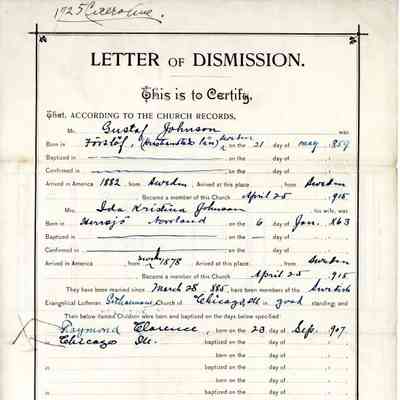 1725 Cicero Ave.
LETTER OF DISMISSION.
This is to Certify,
That, ACCORDING TO THE CHURCH RECORDS,
Mr. Gustaf Johnson was
Born in Förslöf, (Kristianstad län) Sweden on the 21 day of may 1859
Baptized in on the day of
Confirmed in on the day of
Arrived in America 1882, from Sweden, Arrived at this place, from Sweden
Became a member of this Church April 25 1915
Mrs. Ida Kristina Johnson, his wife, was
Born in Norrland on the 6 day of Jan. 1863
Baptized in on the day of
Confirmed in on the day of
Arrived in America 1878, from Arrived at this place, from Sweden
Became a member of this Church April 25 1915
They have been married since March 28 1885, have been members of the Swedish
Evangelical Lutheran Church of Chicago, Ill. in good standing; and
Then below named Children were born and baptized on the days below specified:
Raymond Clarence, born on the 23 day of Sep. 1907
Chicago Ill. baptized on the day of
born on the day of
baptized on the day of
born on the day of
baptized on the day of